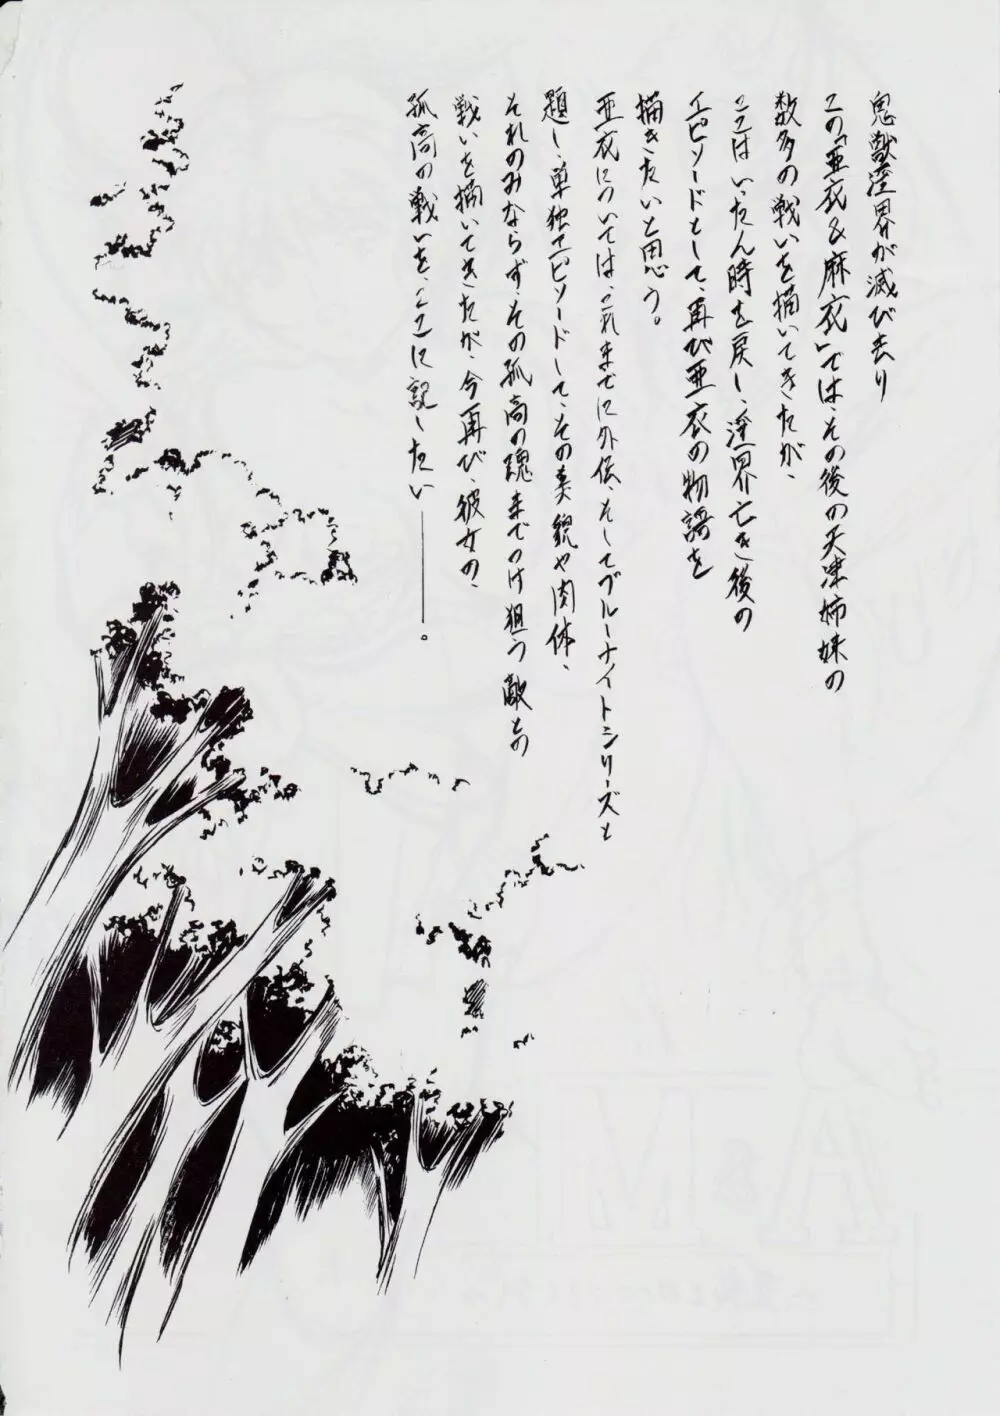 鬼獣淫界が滅び去り
この「亜衣&麻衣」では、その後の天津姉妹の
数多の戦いを描いてきたが、
ここはいったん時を戻し、淫界亡き後の
エピソードとして、再び亜衣の物語を
描きたいと思う。
亜衣については、これまでに外伝、そしてブルーナイトシリーズと
題し、単独エピソードして、その美貌や肉体、
それのみならず、その孤高の魂までつけ狙う敵との
戦いを描いてきたが、今再び、彼女の、
孤高の戦いを、ここに記したい――。
A & M